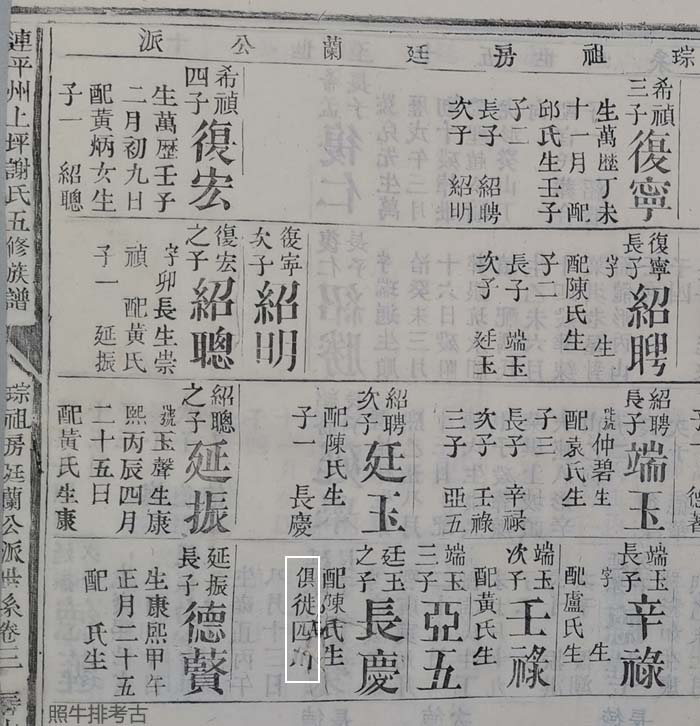 琮祖房廷蘭公派
希禎三子 復寧
生萬歷丁未
十一月 配
邱氏生壬子
子二
長子 紹聘
次子 紹明
希禎四子 復宏
生萬歷壬子
二月初九日
配黃炳女生
子一 紹聰
復寧長子 紹聘
字 生
配陳氏生
子二
長子 端玉
次子 廷玉
復寧次子 紹明
復宏之子 紹聰
字卯長生崇
禎 配黃氏
子一 延振
紹聘長子 端玉
號仲碧生
配袁氏生
子三
長子 辛祿
次子 壬祿
三子 亞五
紹聘次子 廷玉
配陳氏生
子一 長慶
紹聰之子 延振
號玉聲生康
熙丙辰四月
二十五日
配黃氏生康
端玉長子 辛祿
字 生
配盧氏生
端玉次子 壬祿
配黃氏生
端玉三子 亞五
廷玉之子 長慶
配陳氏生
俱徙四川
延振長子 德
生康熙甲午
正月二十五
配 氏生
連平州上坪謝氏五修族譜
琮祖房廷蘭公派世系卷三
照牛排考古